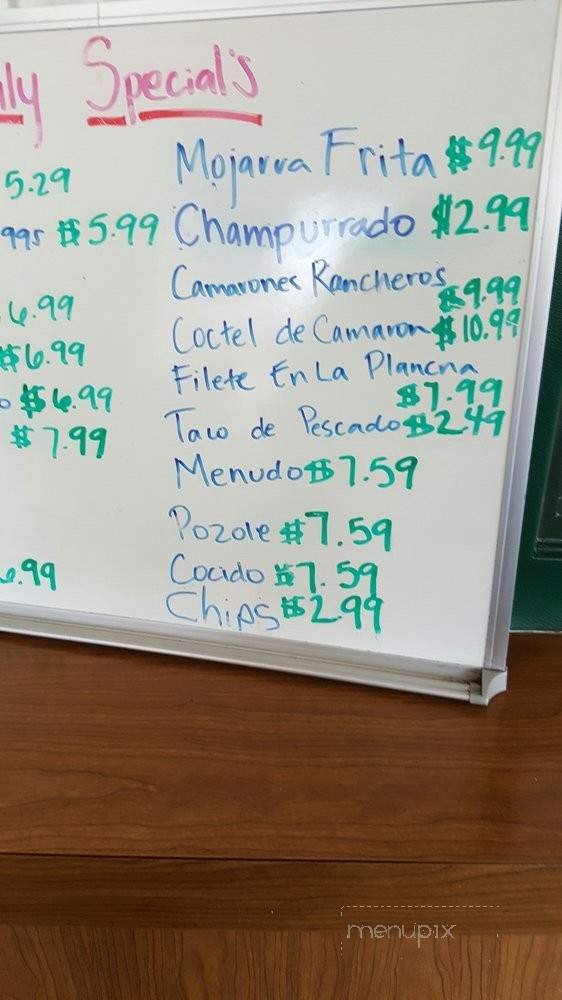 ly Special's
5.29
995 $5.99
6.99
$6.99
o $6.99
$7.99
6.99
Mojarra Frita $9.99
Champurrado $2.99
Camarones Rancheros
$9.99
Coctel de Camaron $10.99
Filete En La Plancha
$7.99
Taco de Pescado $2.49
Menudo $7.59
Pozole $7.59
Cocido $7.59
Chips $2.99
menupix